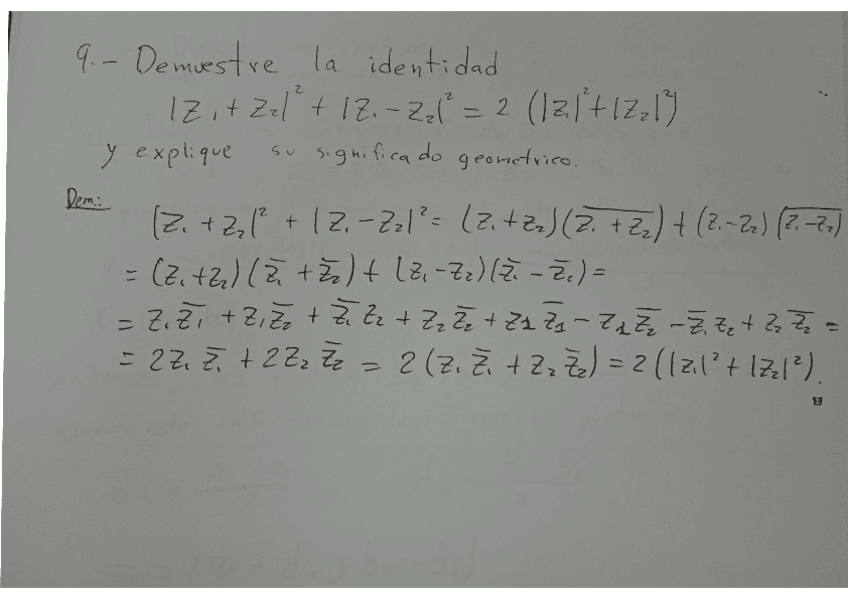 9.- Demuestre la identidad
|Z₁ + Z₂|² + |Z₁ - Z₂|² = 2 (|Z₁|² + |Z₂|²)
y explique su significado geometrico.
Dem.:
|Z₁ + Z₂|² + |Z₁ - Z₂|² = (Z₁ + Z₂)(\overline{Z₁ + Z₂}) + (Z₁ - Z₂)(\overline{Z₁ - Z₂})
= (Z₁ + Z₂)(Z̄₁ + Z̄₂) + (Z₁ - Z₂)(Z̄₁ - Z̄₂) =
= Z₁Z̄₁ + Z₁Z̄₂ + Z̄₁Z₂ + Z₂Z̄₂ + Z1Z̄1 - Z1Z̄₂ - Z̄₁Z₂ + Z₂Z̄₂ =
= 2Z₁Z̄₁ + 2Z₂Z̄₂ = 2(Z₁Z̄₁ + Z₂Z̄₂) = 2(|Z₁|² + |Z₂|²).